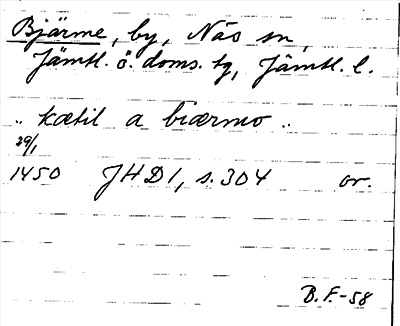 Bjärme, by, Näs sn,
Jämtl. ö. doms. tg, Jämtl. l.
.. kætil a biærmo ..
29/1
1450 JHD1, s. 304 or.
B.F.-58